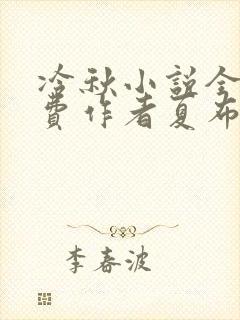 冷秋小说全
费作者夏布
李春波